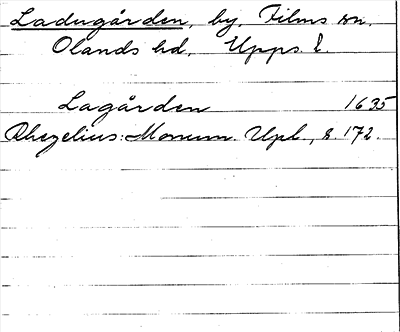 Ladugården, by, Films sn.
Olands hd, Upps. l.
Lagården 1635
Rhezelius: Monum. Upl., s. 172.